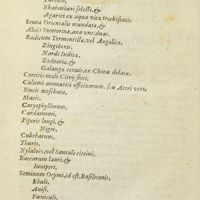 Rhabarbari selecti, &
Agarici ex aqua vitæ trochiscati:
Senna Orientalis mundata, &
Aloës Socotorina, ana unc: duas.
Radicum Tormentilla, vel Angelica,
Zingiberis,
Nardi Indica,
Zedoaria, &
Galanga tenuis, ex China delata,
Corticis mali Citrij sicci,
Calami aromatici officinarum, seu Acori veri,
Nucis moschata,
Macis,
Caryophyllorum,
Cardamomi,
Piperis longi, &
Nigri,
Cubebarum,
Thuris,
Xylaloës, vel Santali citrini,
Baccarum lauri, &
Juniperi,
Seminum Ocymi, id est, Basiliconis,
Ebuli,
Anisi,
Fœniculi,